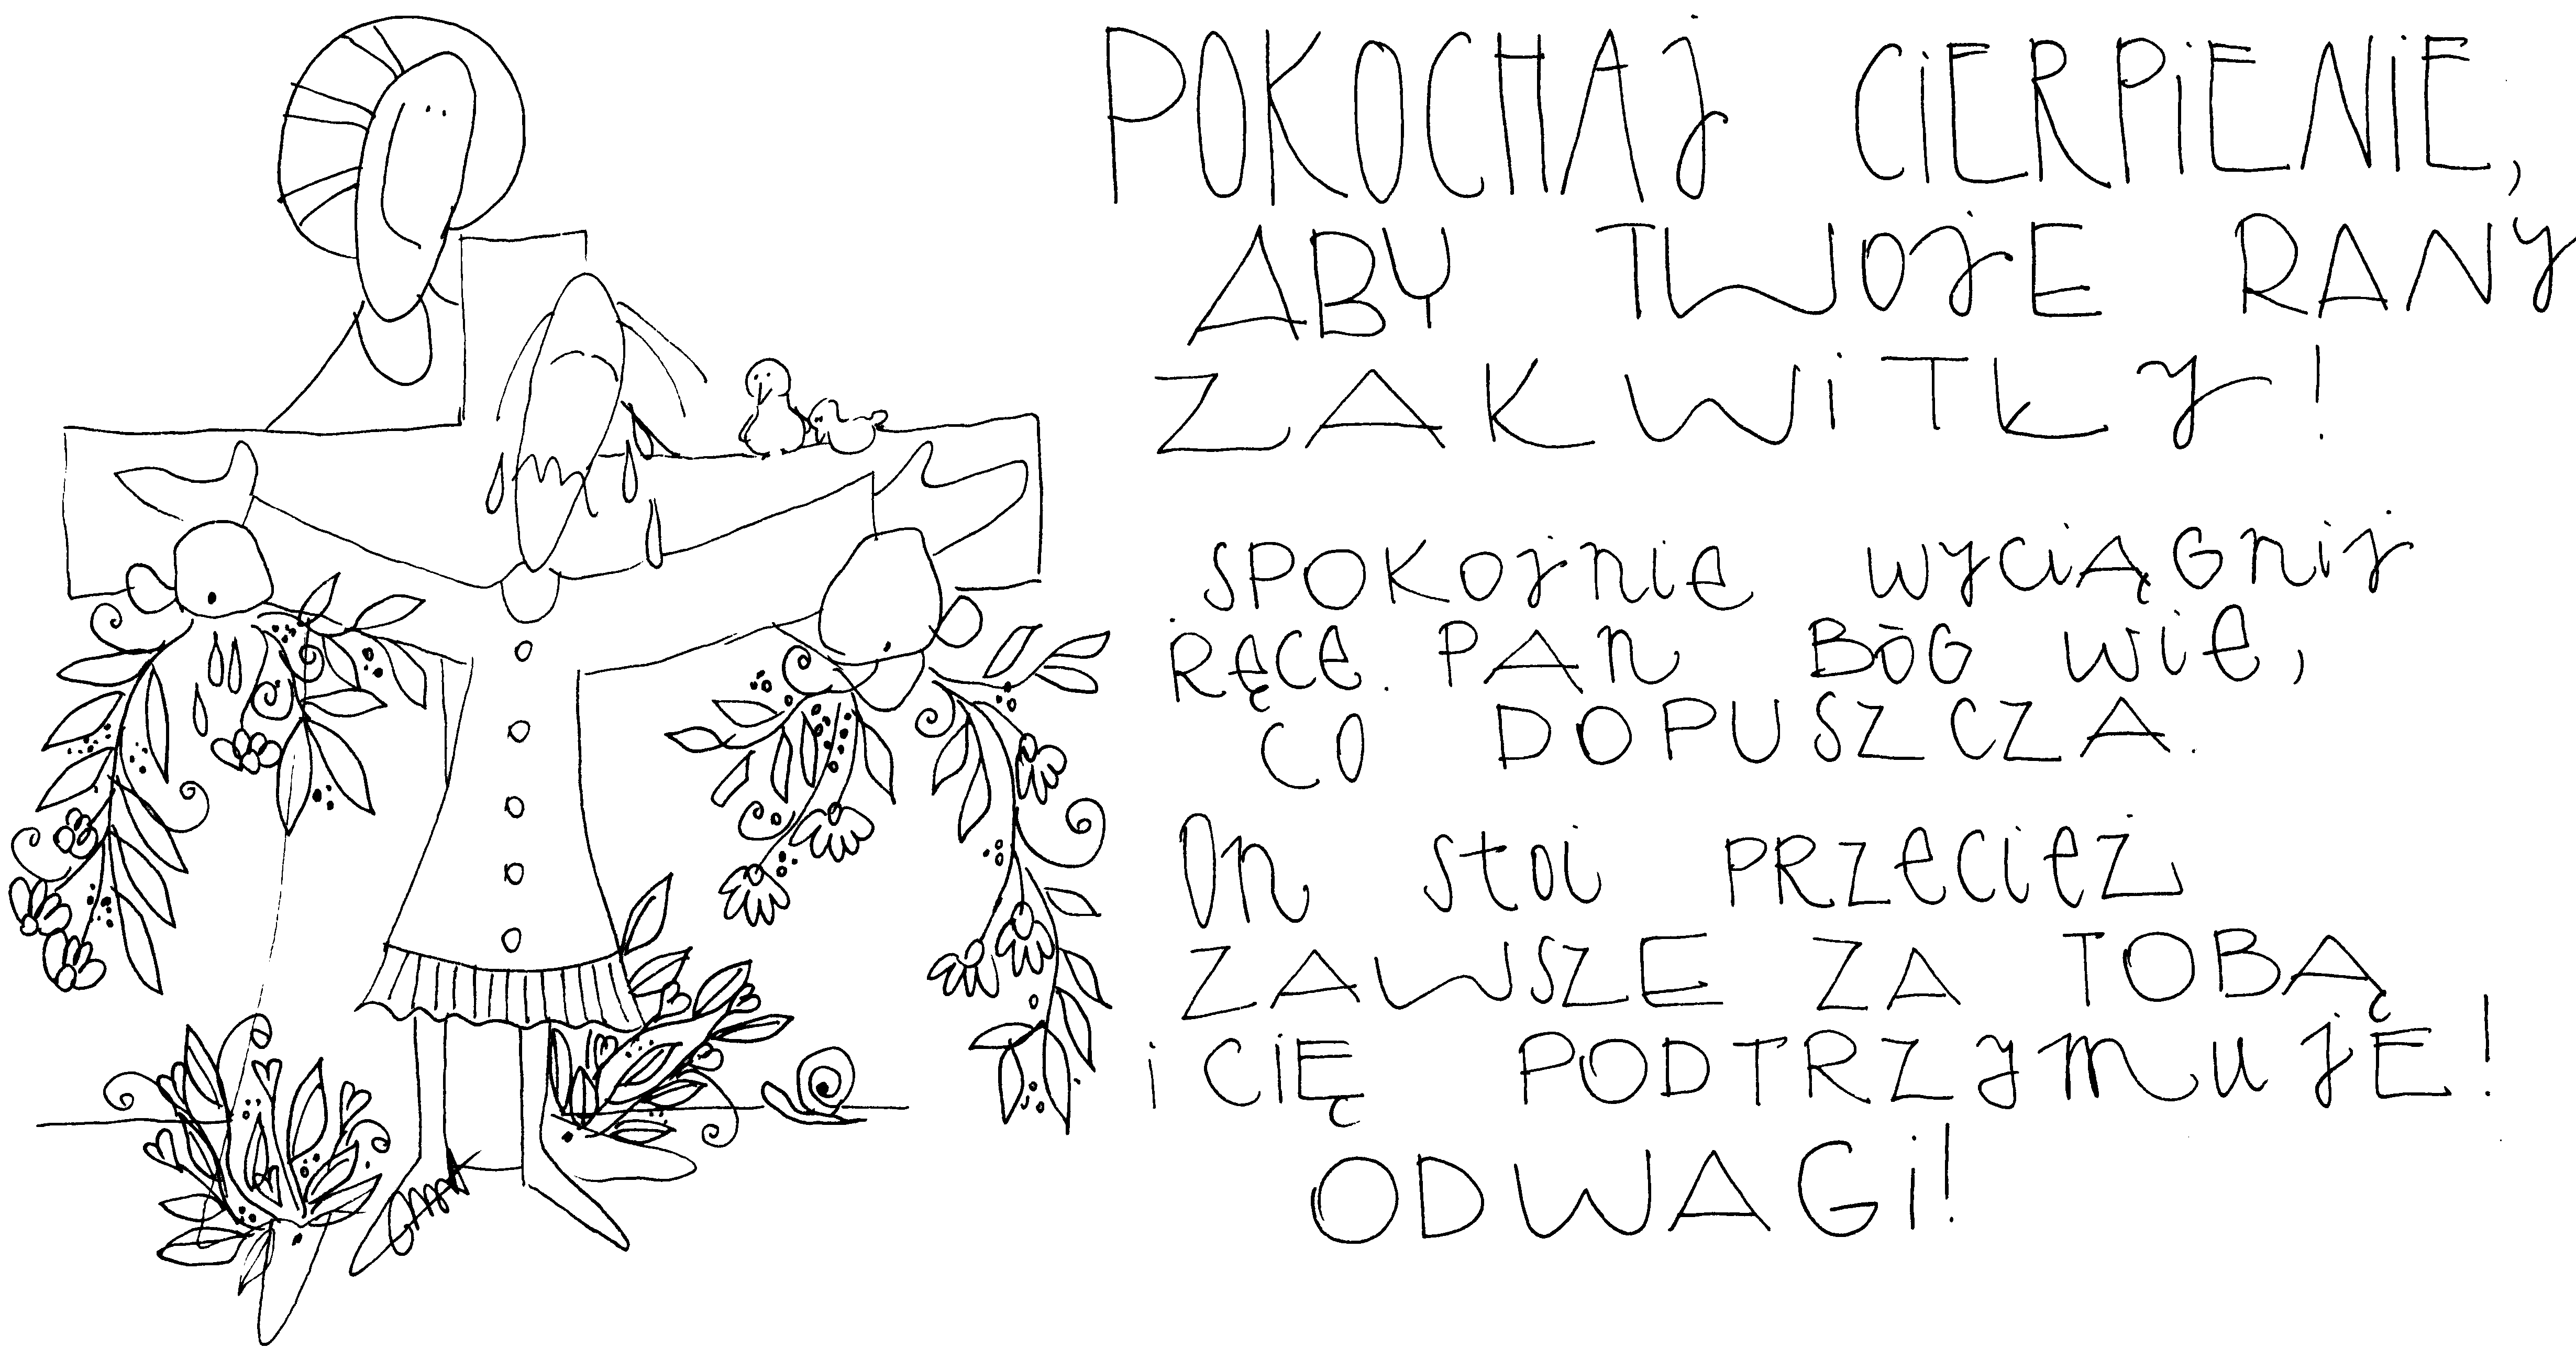 POKOCHAJ CIERPIENIE,
ABY TWOJE RANY
ZAKWITŁY!
SPOKOJNIE WYCIĄGNIJ
RĘCE. PAN BÓG WIE,
CO DOPUSZCZA.
ON STOI PRZECIEŻ
ZAWSZE ZA TOBĄ
i CIĘ PODTRZYMUJE!
ODWAGI!